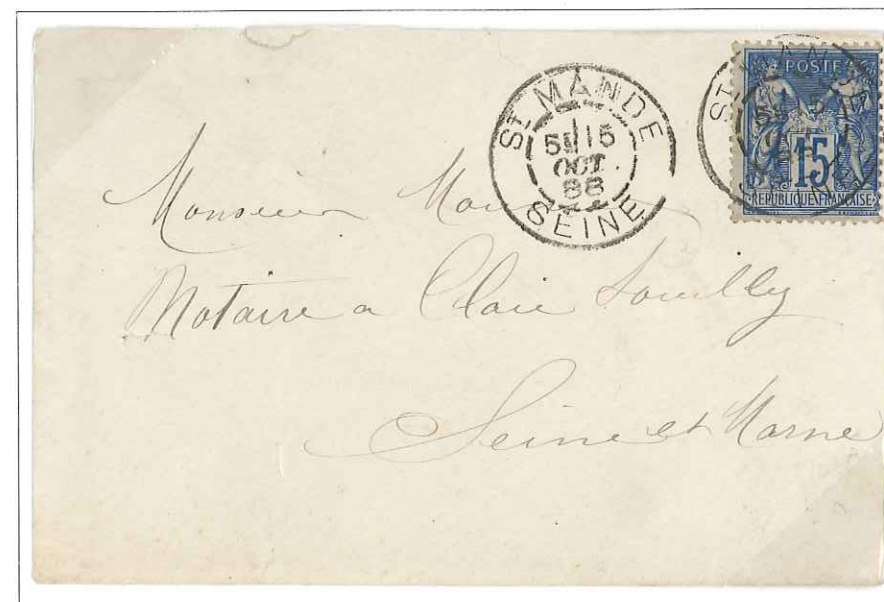 St MANDE
5E 15
OCT.
88
SEINE
POSTE
15
REPUBLIQUE FRANÇAISE
Monsieur
Notaire a Claie Souilly
Seine et Marne